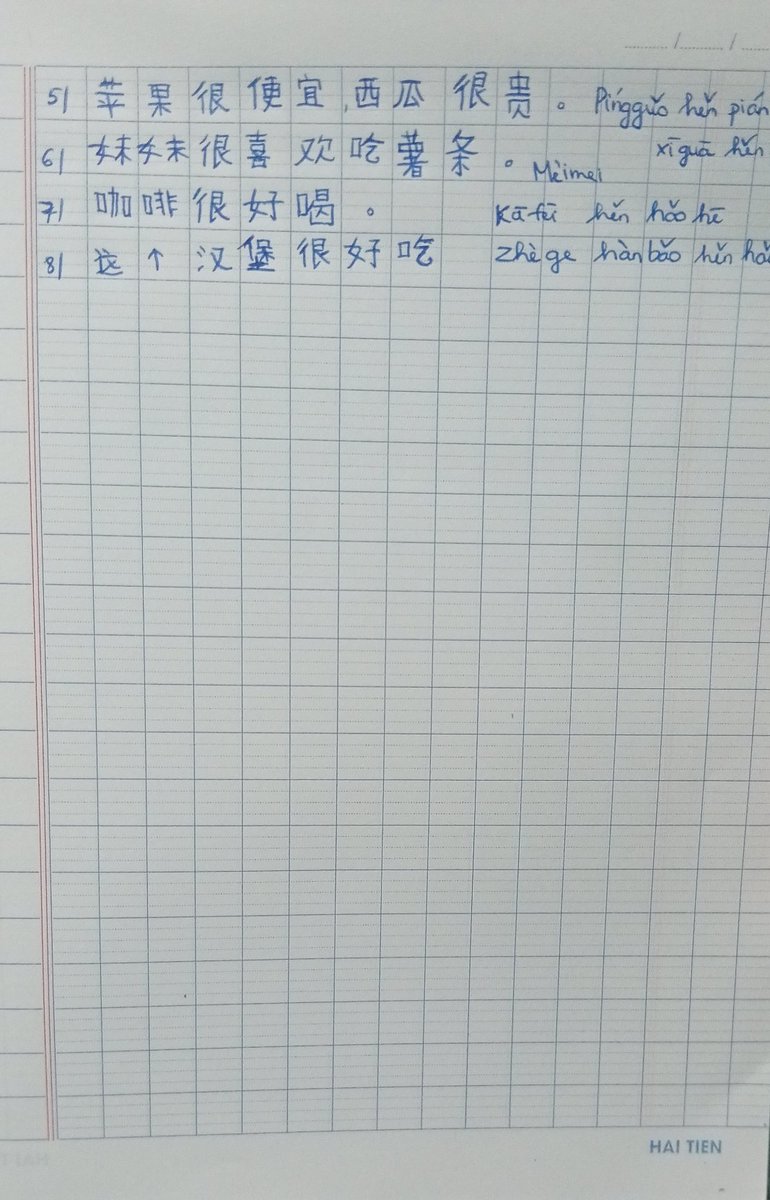 5) 苹果很便宜,西瓜很贵。 Píngguǒ hěn pián
6) 妹妹很喜欢吃薯条。 Mèimei xīguā hěn
7) 咖啡很好喝。 Kāfēi hěn hǎo hē
8) 这个汉堡很好吃 Zhège hànbǎo hěn hǎo
HAI TIEN